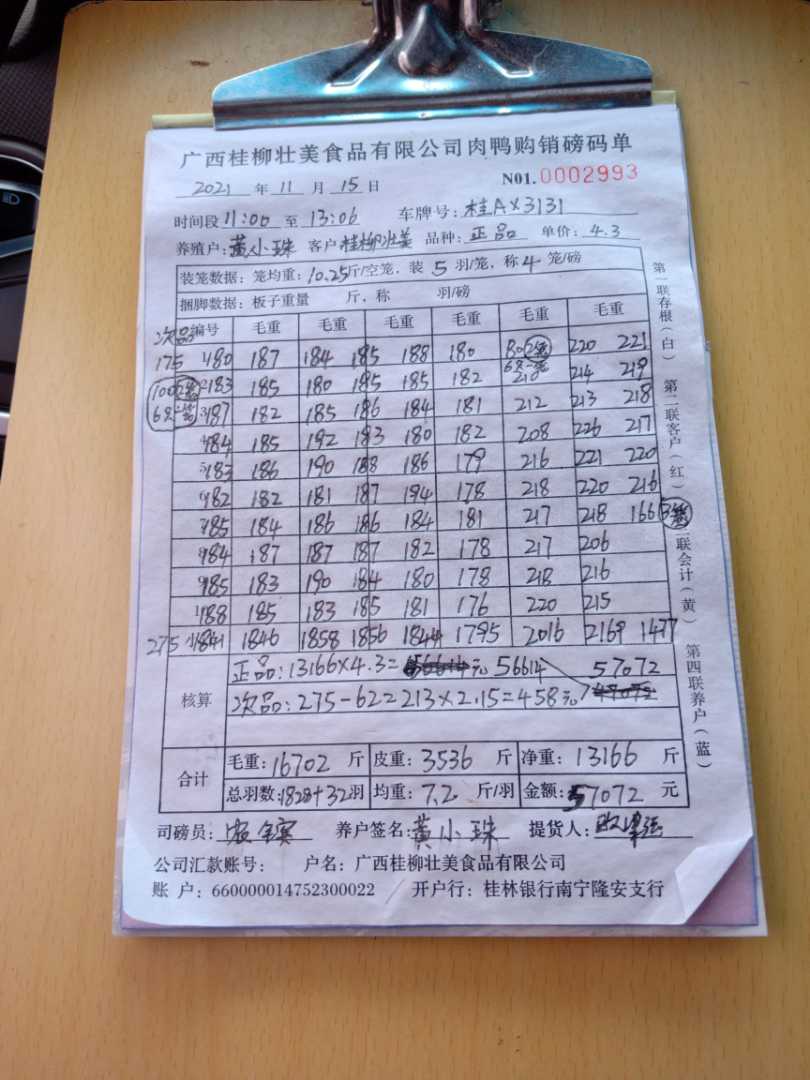 广西桂柳壮美食品有限公司肉鸭购销磅码单
2021 年 11 月 15 日 N01.0002993
时间段 11:00 至 13:06 车牌号: 桂AX3131
养殖户: 黄小珠 客户 桂柳壮美 品种: 正品 单价: 4.3
装笼数据: 笼均重: 10.25 斤/空笼, 装 5 羽/笼, 称 4 笼/磅
捆脚数据: 板子重量 斤, 称 羽/磅
次品 编号 毛重 毛重 毛重 毛重 毛重 毛重
175 180 187 184 185 188 180 80 2笼 220 221
100 2笼 183 185 180 185 185 182 68 一笼 218 214 219
68 187 182 185 186 184 181 212 213 218
184 185 192 183 180 182 208 226 217
183 186 190 188 186 179 216 221 220
182 182 181 187 194 178 218 220 216
185 184 186 186 184 181 217 218 166 3笼
184 187 187 187 182 178 217 206
185 183 190 184 180 178 218 216
188 185 183 185 181 176 220 215
275 1841 1846 1858 1856 1844 1795 2016 2169 1477
核算 正品: 13166×4.3= 56614 57072
次品: 275-62=213×2.15=458元
合计 毛重: 16702 斤 皮重: 3536 斤 净重: 13166 斤
总羽数: 1828+32羽 均重: 7.2 斤/羽 金额: 57072 元
司磅员: 养户签名: 黄小珠 提货人:
公司汇款账号: 户名: 广西桂柳壮美食品有限公司
账 户: 660000014752300022 / 开户行: 桂林银行南宁隆安支行
第一联存根(白)
第二联客户(红)
联会计(黄)
第四联养户(蓝)